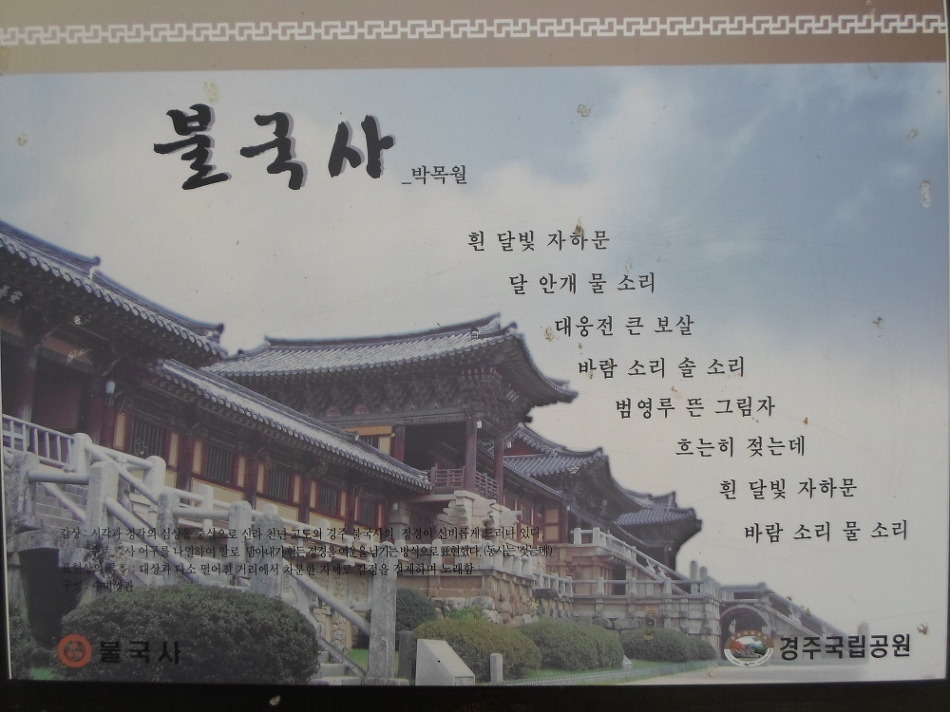 불국사
_박목월
흰 달빛 자하문
달 안개 물 소리
대웅전 큰 보살
바람 소리 솔 소리
범영루 뜬 그림자
흐는히 젖는데
흰 달빛 자하문
바람 소리 물 소리
감상 : 시각과 청각의 심상을 조상으로 신라 천년 고도의 경주 불국사의 정경이 신비롭게 드러나 있다.
어구를 나열하여 말로 감정을 여운을 남기는 방식으로 표현했다.
: 대상과 다소 떨어진 거리에서 차분한 자세로 감정을 절제하며 노래함
불국사
경주국립공원